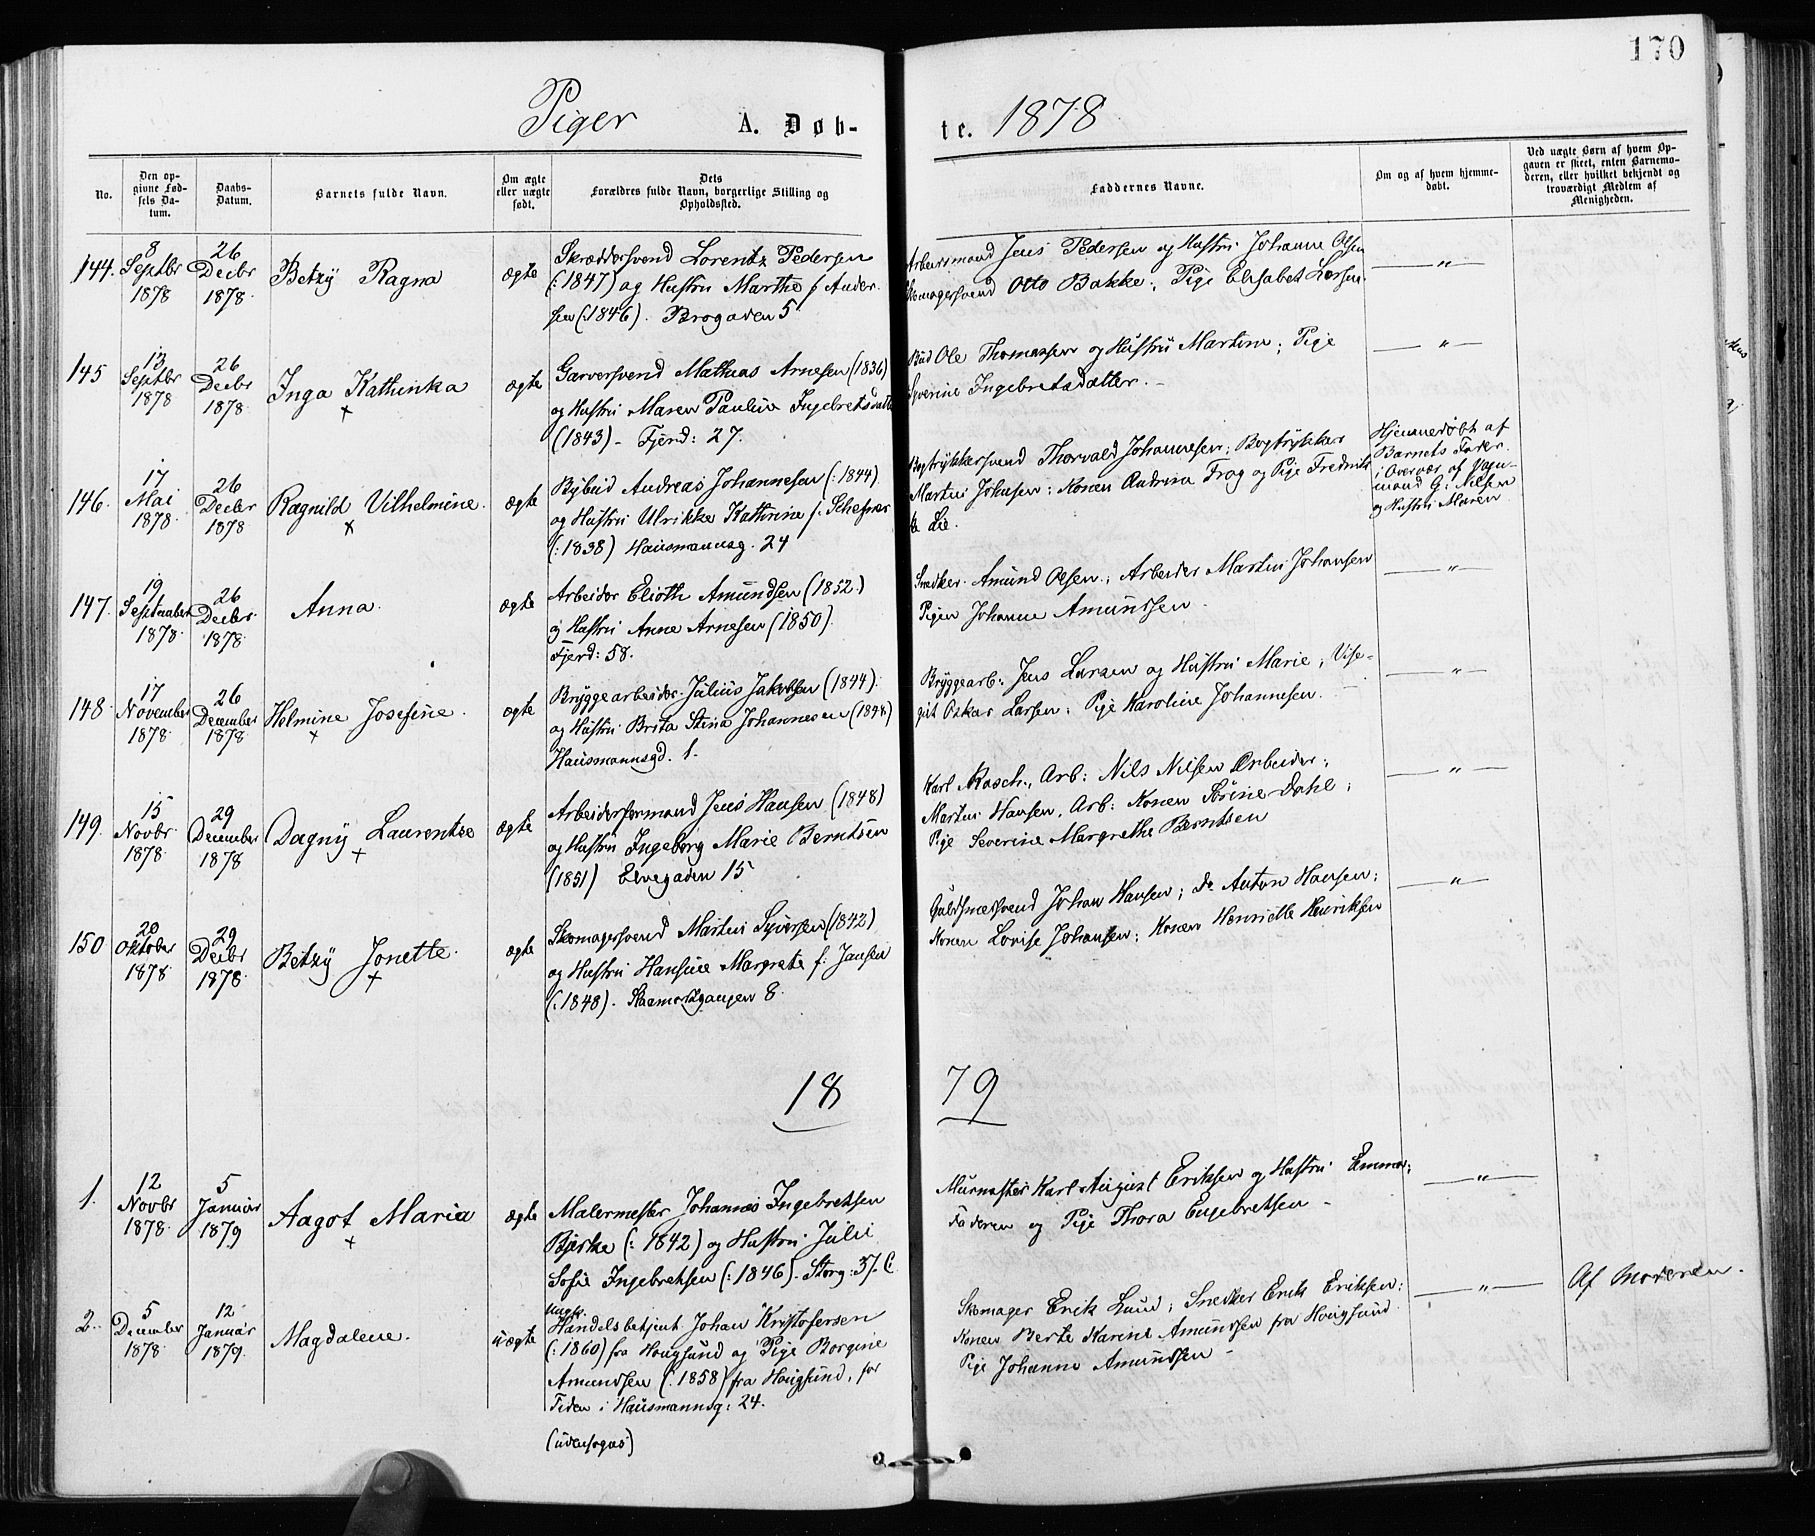 170
Piger A. Døb-
te. 1878
No.
Den op-
givne Fød-
sels Da-
tum.
Daabs-
Datum.
Barnets fulde Navn.
Om ægte
eller uægte
født.
Dets
Forældres fulde Navn, borgerlige Stilling og
Opholdssted.
Faddernes Navne.
Om og af hvem hjemme-
døbt.
Ved uægte Børn af hvem Op-
gaven er skeet, enten Barnemo-
deren, eller hvilket bekjendt og
troværdigt Medlem af
Menigheden.
144.
8
Septbr
1878
26
Decbr
1878.
Betzy Ragna
ægte
Skræddersvend Lorentz Pedersen
(: 1847) og Hustru Marthe f. Ander-
sen (: 1846). Brogaden 5
Arbeidsmand Jens Pedersen og Hustru Johanne Olsen
Skomagersvend Otto Bakke; Pige Elisabet Larsen
— " —
145
13
Septbr
1878
26
Decbr
1878.
Inga Kathinka
+
ægte
Garversvend Mathias Arnesen (1836)
og Hustru Maren Pauline Ingebretsdatter
(1843) - Fjerd: 27.
Bud Ole Thomassen og Hustru Martine; Pige
Syverine Ingebretsdatter. -
— " —
146.
17
Mai
1878.
26
Decbr
1878
Ragnild Vilhelmine.
x
ægte
Bybud Andreas Johannesen (: 1844)
og Hustru Ulrikke Kathrine f.
(: 1838) Hausmannsg. 24
Bogtrykkersvend Thorvald Johannesen; Bogtrykker
Martin Johnsen; Konen Andrina Frog og Pige Fredrik-
ke Lie.
Hjemmedøbt af
Barnets Fader
i Overvær af Vogn-
mand G: Nilsen
og Hustru Maren
147.
19
September
1878.
26
Decbr.
1878
Anna.
ægte
Arbeider Elioth Amundsen (1852.)
og Hustru Anne Arnesen (1850).
Fjerd: 58.
Snedker. Amund Olsen; Arbeider Martin Johansen
Pigen Johanne Amundsen.
— " —
148.
17
November
1878.
26
December
1878.
Helmine Josefine.
+
ægte
Bryggearbeider. Julius Jakobsen (1844).
og Hustru Brita Stina Johannesen (1848)
Hausmannsgd. 1.
Bryggearb: Jens Larsen og Hustru Marie; Vise-
gut Oskar Larsen; Pige Karoline Johannesen. —
— " —
149.
15
Novbr.
1878.
29
December
1878
Dagny Laurentze
+
ægte
Arbeiderformand Jens Hansen (1848)
og Hustru Ingeborg Marie Berntsen
(1851) Elvegaden 15
Karl Rasch., Arb: Nils Nilsen Arbeider;
Martin Hansen, Arb: Konen Sørine Dahl;
Pige Severine Margrethe Berntsen
— " —
150
20
Oktober
1878.
29
Decbr
1878.
Betzy Jonette.
+
ægte
Skomagersvend Martin Syversen (1842)
og Hustru Hansine Margrete f. Jansen
(: 1848).
Guldsmedsvend Johan Hansen; Do Anton Hansen;
Konen Lovise Johansen; Konen Henriette Henriksen
— " —
18 79
1.
12
Novbr
1878.
5
Januar
1879
Aagot Maria
+
ægte
Malermester Johannes Ingebretsen
Bjerke (: 1842) og Hustru Julie
Sofie Ingebretsen (: 1846). Storg: 37. C.
Murmester Karl August Eriksen og Hustru Emma;
Faderen og Pige Thora Engebretsen -
— " —
2.
5
December
1878.
12
Januar
1879.
Magdalene.
uægte
Ungk.
Handelsbetjent Johan Kristofersen
(: 1860) fra Hougsund og Pige Borgine
Amundsen (: 1858) fra Hougsund, for
Tiden i Hausmannsg: 24.
(udensogns)
Skomager Erik Lund; Snedker Erik Eriksen;
Konen Berte Karine Amundsen fra Hougsund
Pige Johanne Amundsen -
— " —
Af Moderen.